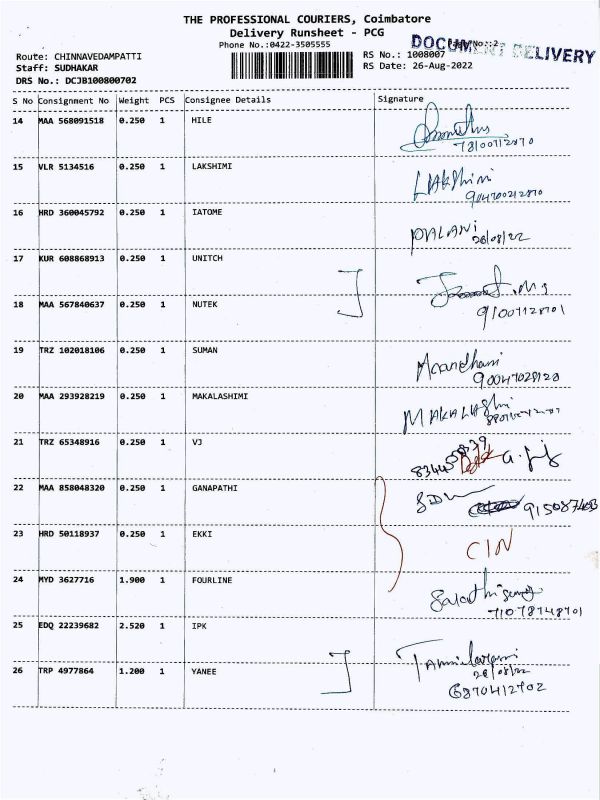 THE PROFESSIONAL COURIERS, Coimbatore
Delivery Runsheet - PCG
Phone No.:0422-3505555
DOCUMENT DELIVERY
Route: CHINNAVEDAMPATTI
RS No.: 1008007
Staff: SUDHAKAR
RS Date: 26-Aug-2022
DRS No.: DCJB100800702
S No Consignment No Weight PCS Consignee Details Signature
14 MAA 568091518 0.250 1 HILE
15 VLR 5134516 0.250 1 LAKSHIMI
LAKShimi
16 HRD 360045792 0.250 1 IATOME
PALANi
26/08/22
17 KUR 608868913 0.250 1 UNITCH
18 MAA 567840637 0.250 1 NUTEK
19 TRZ 102018106 0.250 1 SUMAN
20 MAA 293928219 0.250 1 MAKALASHIMI
21 TRZ 65348916 0.250 1 VJ
22 MAA 858048320 0.250 1 GANAPATHI
23 HRD 50118937 0.250 1 EKKI
CIN
24 MYD 3627716 1.900 1 FOURLINE
25 EDQ 22239682 2.520 1 IPK
26 TRP 4977864 1.200 1 YANEE
26/08/22